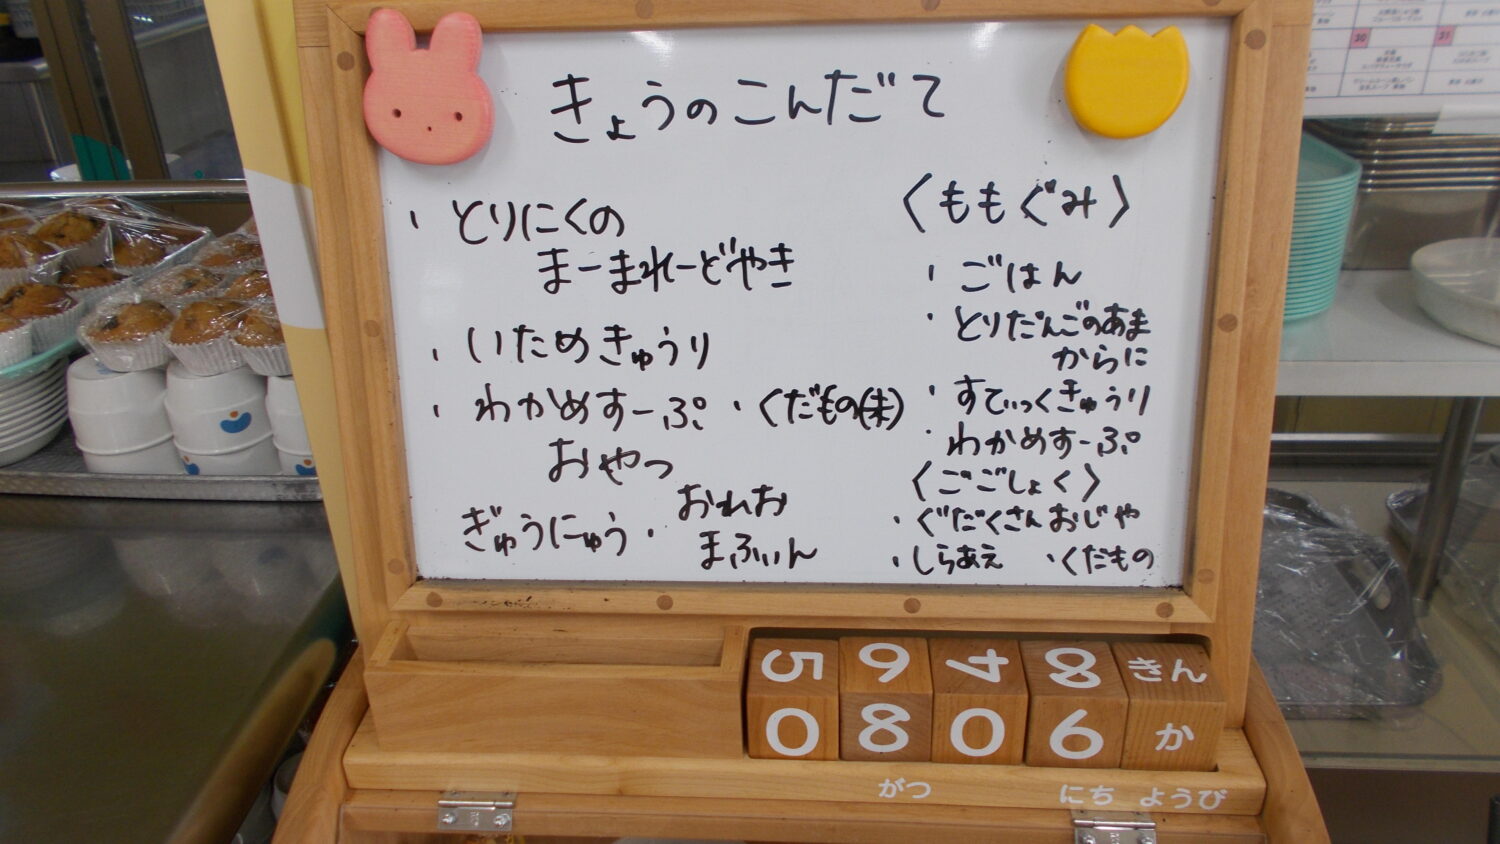 きょうのこんだて
・とりにくの
まーまれーどやき
・いためきゅうり
・わかめすーぷ ・くだもの
おやつ
ぎゅうにゅう・おれお
まふぃん
〈ももぐみ〉
・ごはん
・とりだんごのあま
からに
・すてぃっくきゅうり
・わかめすーぷ
〈ごごしょく〉
・ぐだくさんおじや
・しらあえ ・くだもの
5 6 4 8 きん
0 8 0 6 か
がつ にち ようび
30 31